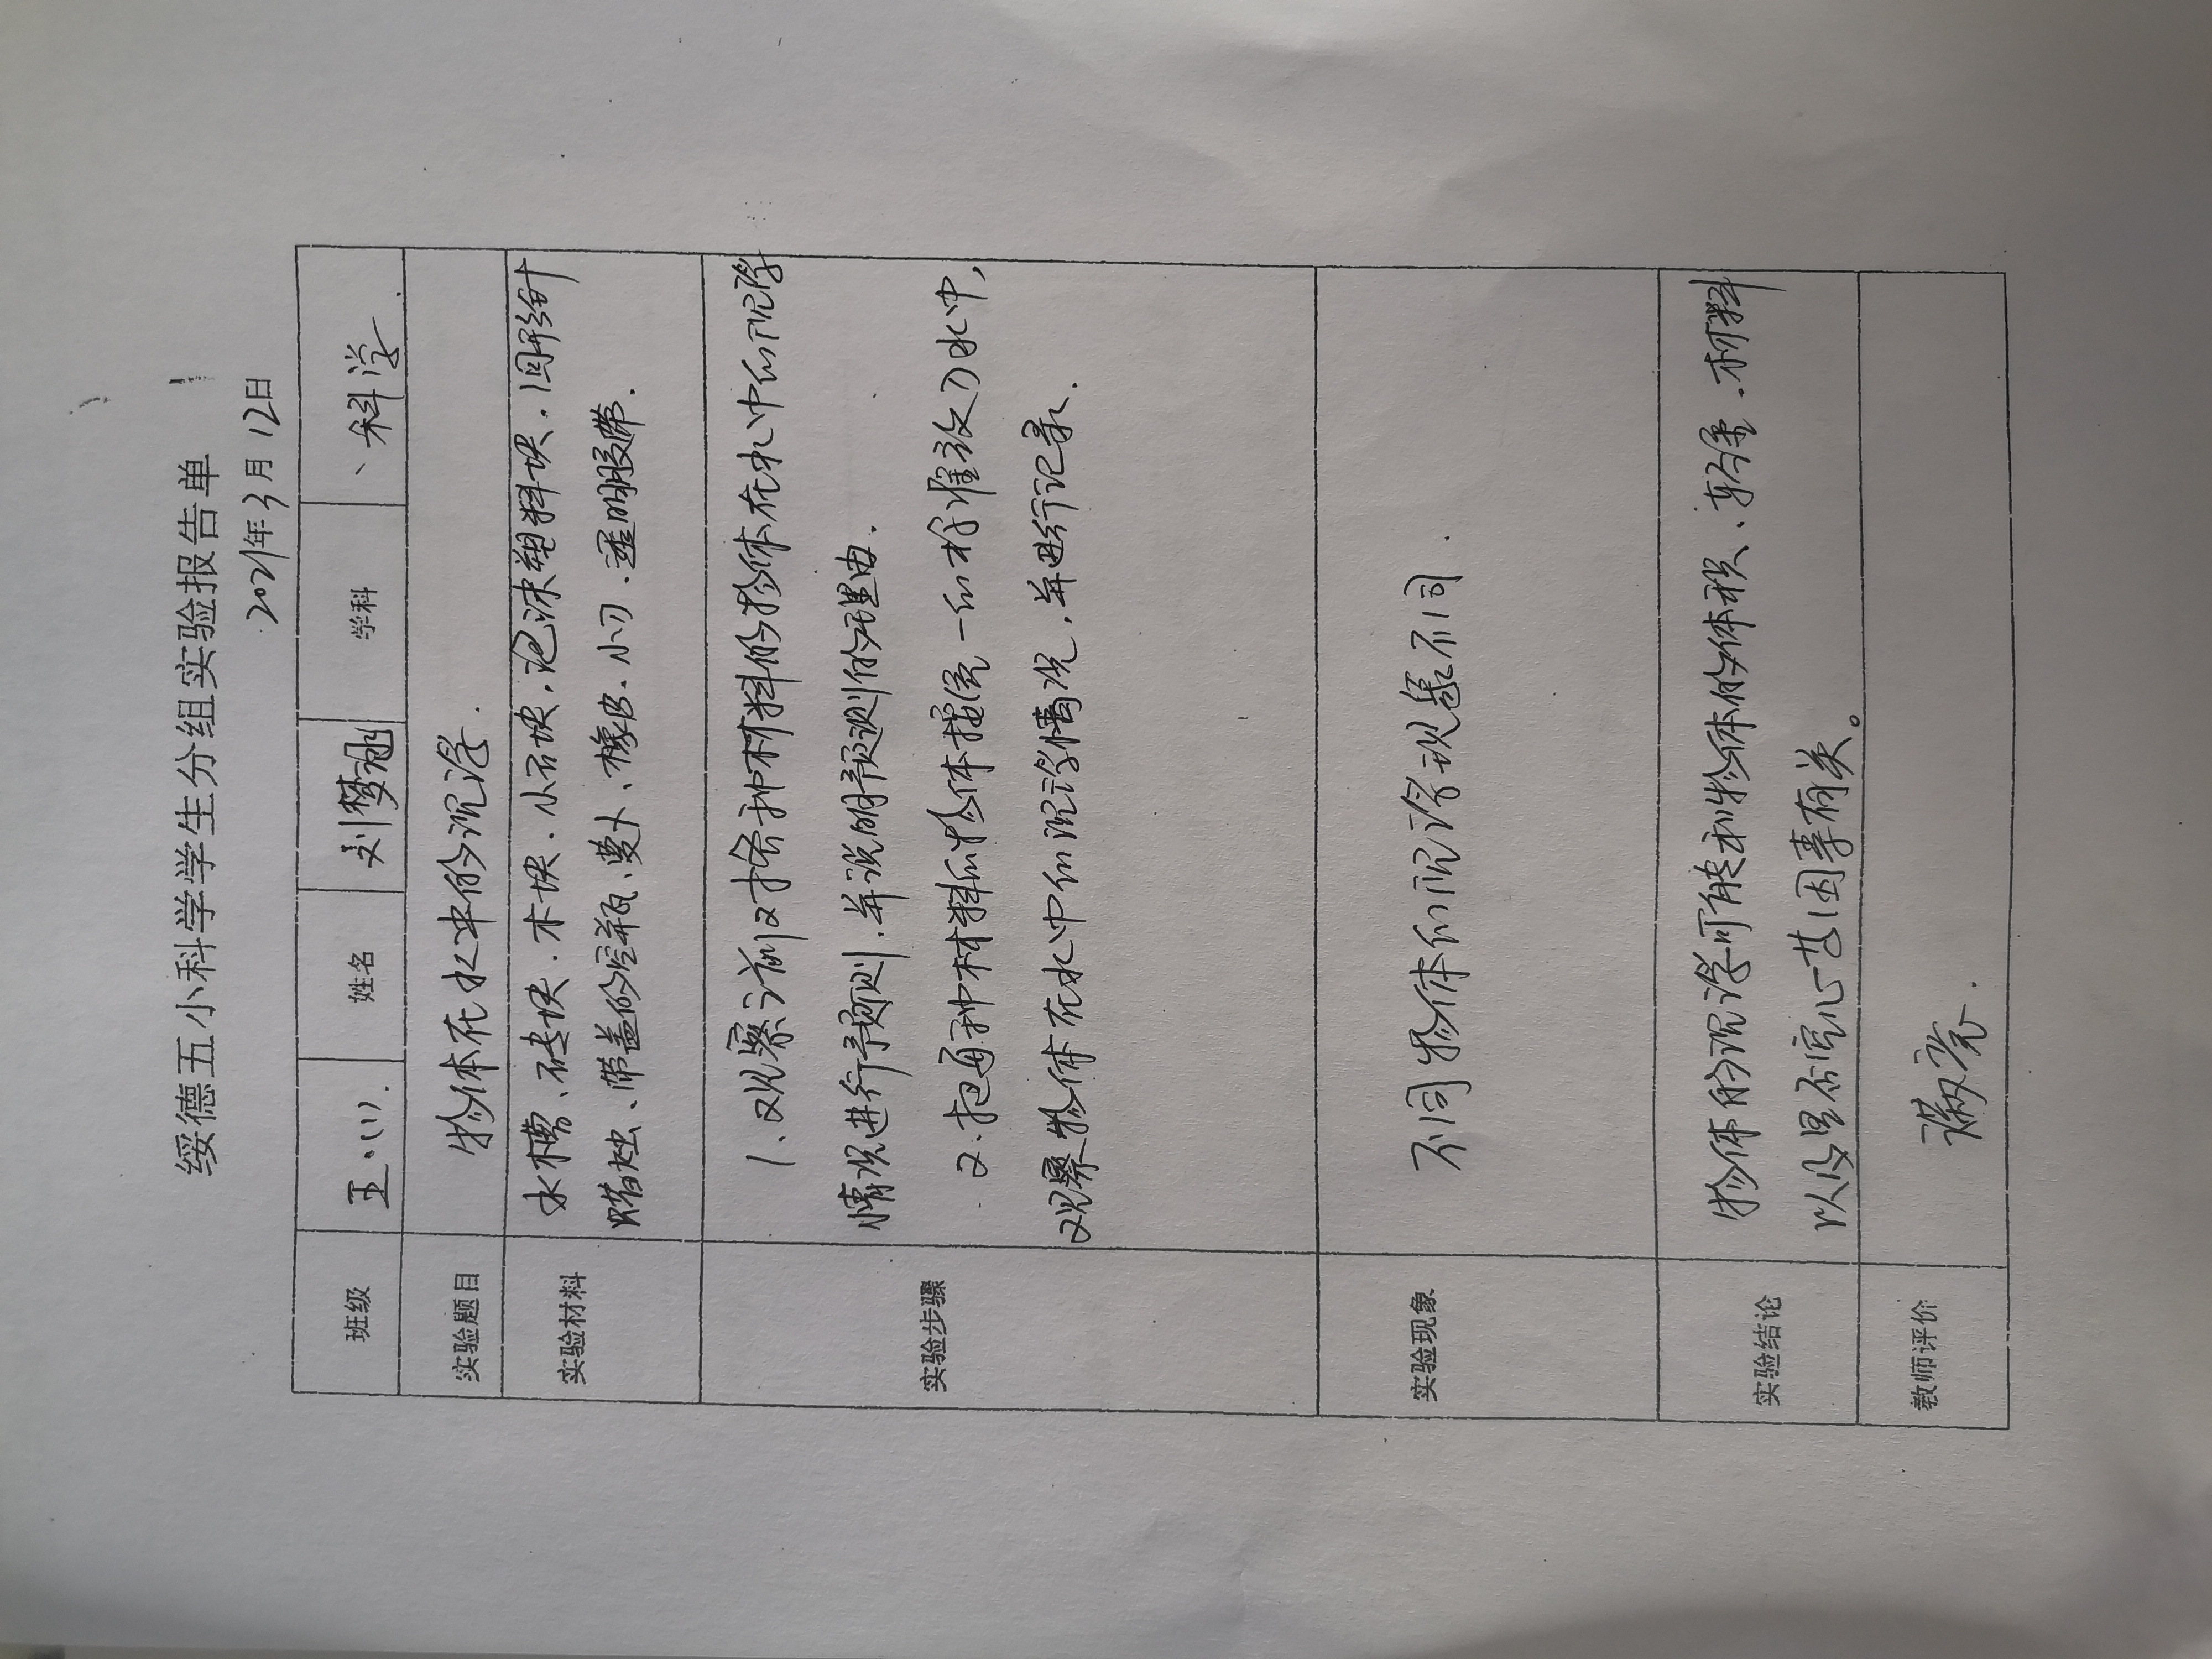 绥德五小科学学生分组实验报告单
2021年3月12日
班级 五.(1). 姓名 刘梦冠 学科 科学
实验题目 物体在水中的沉浮.
实验材料 水槽、砖块.木块.小石块.泡沫塑料块.回形针
腊烛、带盖的空瓶、萝卜、橡皮.小刀.透明胶带.
实验步骤 1.观察之前对各种材料的物体在水中的沉浮
情况进行予预测.并说明予预测的理由.
2.把每种材料的物体按统一的标准放入水中,
观察物体在水中的沉浮情况.并进行记录.
实验现象 不同物体的沉浮现象不同.
实验结论 物体的沉浮可能和物体的体积、轻重.材料
以及是否空心等因素有关。
教师评价